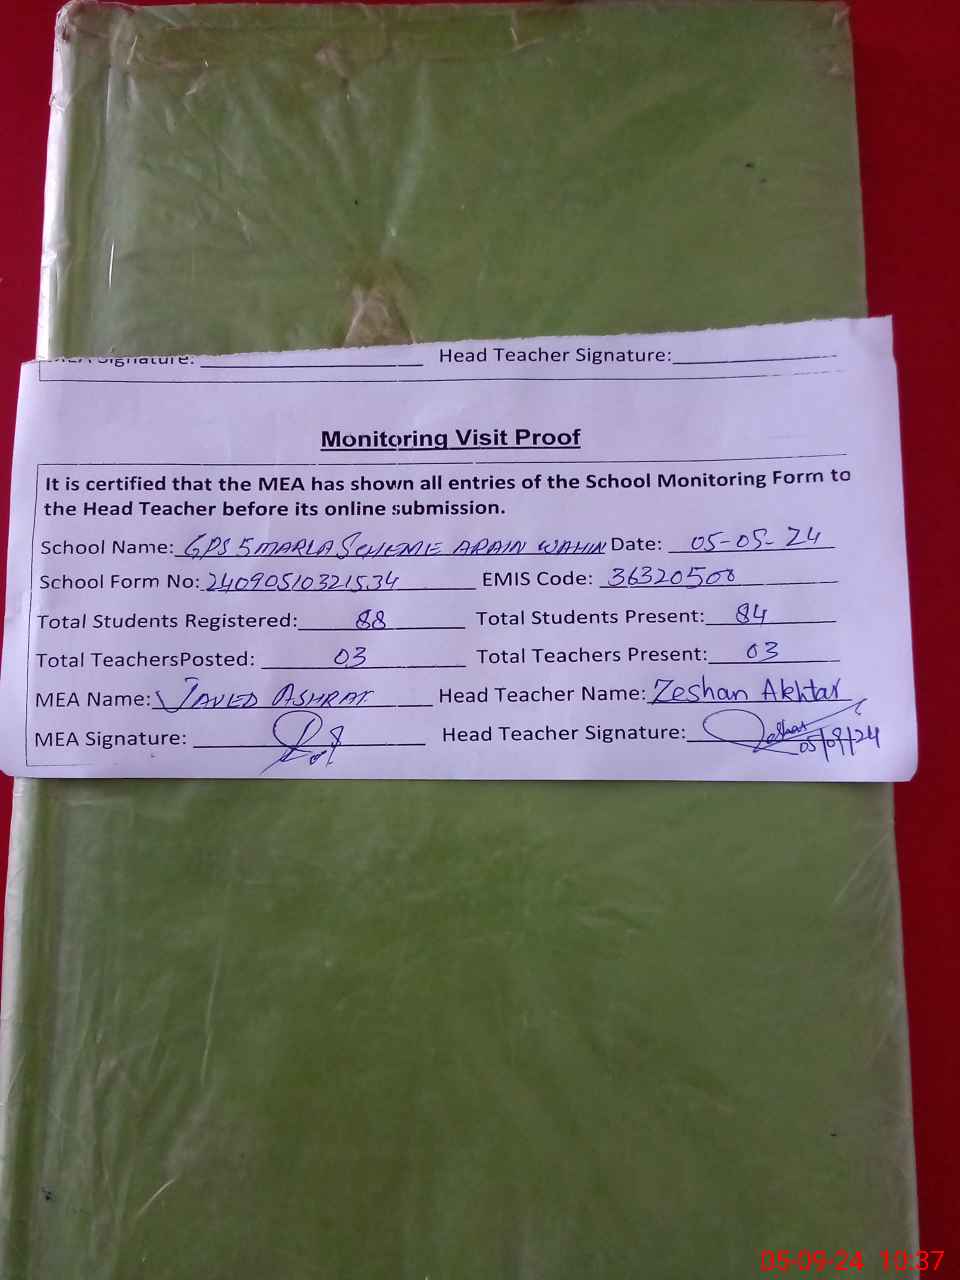 Signature: ____ Head Teacher Signature:____
Monitoring Visit Proof
It is certified that the MEA has shown all entries of the School Monitoring Form to
the Head Teacher before its online submission.
School Name: GPS 5 MARLA SCHEME ARAIN WAHIN Date: 05-09-24
School Form No: 24090510321534 EMIS Code: 36320508
Total Students Registered: 88 Total Students Present: 84
Total TeachersPosted: 03 Total Teachers Present: 03
MEA Name: JAVED ASHRAF Head Teacher Name: Zeshan Akhtar
MEA Signature: Head Teacher Signature: Zeshan
05/09/24
05-09-24 10:37